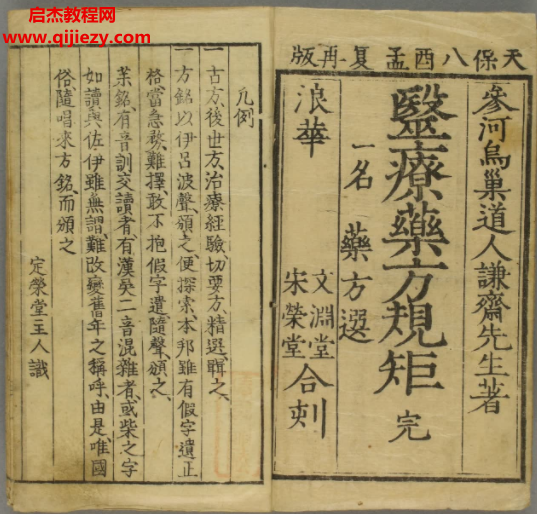 启杰教程网
www.qijiezy.com
天保八酉孟夏再版
參河烏巢道人謙齋先生著
醫療藥方規矩 完
一名 藥方選
浪華 文淵堂 宋榮堂 合刻
凡例
一古方、後世方、治療經驗、切要方、精選、輯之、
一方銘以伊呂波聲、頒之、便探索、本邦雖有假字遣正
格當急務、難擇、敢不抱假字遣、隨聲頒之、
茱銘、有音訓交讀者、有漢吳二音混雜者、或柴之字
如讀與佐伊雖無謂、難改變舊年之稱呼、由是、唯國
俗隨唱來方銘、而頒之
定榮堂主人識